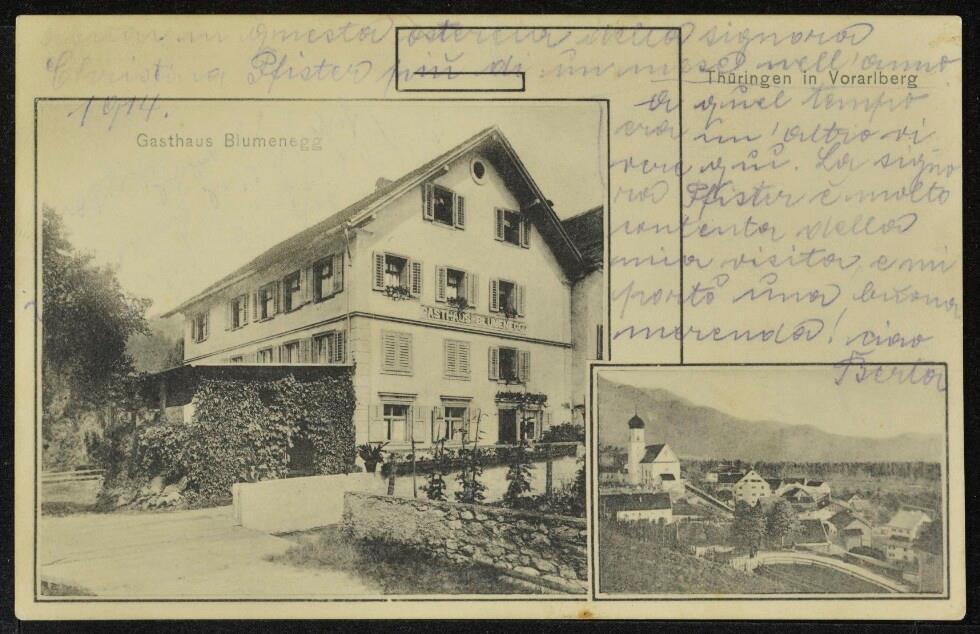 in questa osteria della signora
Christina Pfister più di un mese nell'anno
1914.
Thüringen in Vorarlberg
Gasthaus Blumenegg
a quel tempo
era un' altro vi
vere qui. La signo
ra Pfister è molto
contenta della
mia visita, e mi
portò una buona
merenda! ciao
Berta
GASTHAUS BLUMENEGG